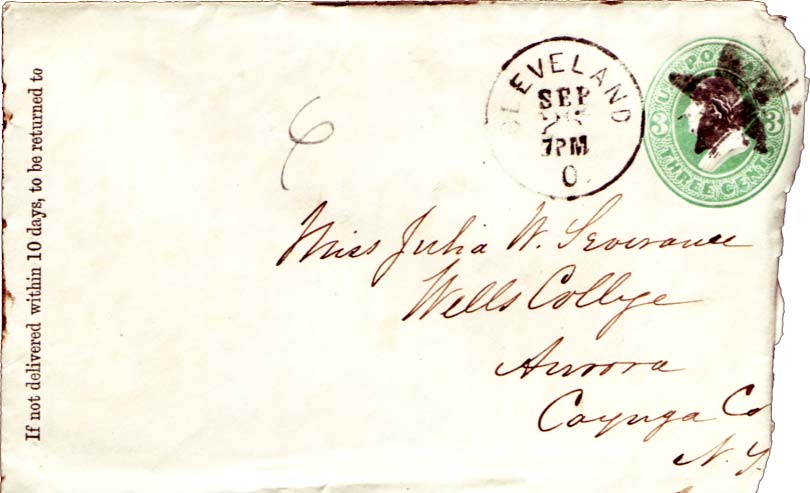 If not delivered within 10 days, to be returned to
CLEVELAND
SEP
7PM
O.
U.S. PO
3 3
THREE CENTS
Miss Julia W. Severance
Wells College
Aurora
Cayuga Co
N.Y.